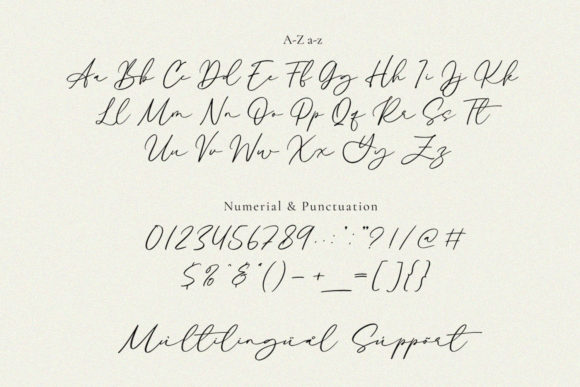 A-Z a-z
Aa Bb Cc Dd Ee Ff Gg Hh Ii Jj Kk
Ll Mm Nn Oo Pp Qq Rr Ss Tt
Uu Vv Ww Xx Yy Zz
Numerial & Punctuation
0123456789..:;'"?!/@#
$%^&*()-+_=[]{}
Múltilingüál Süppört